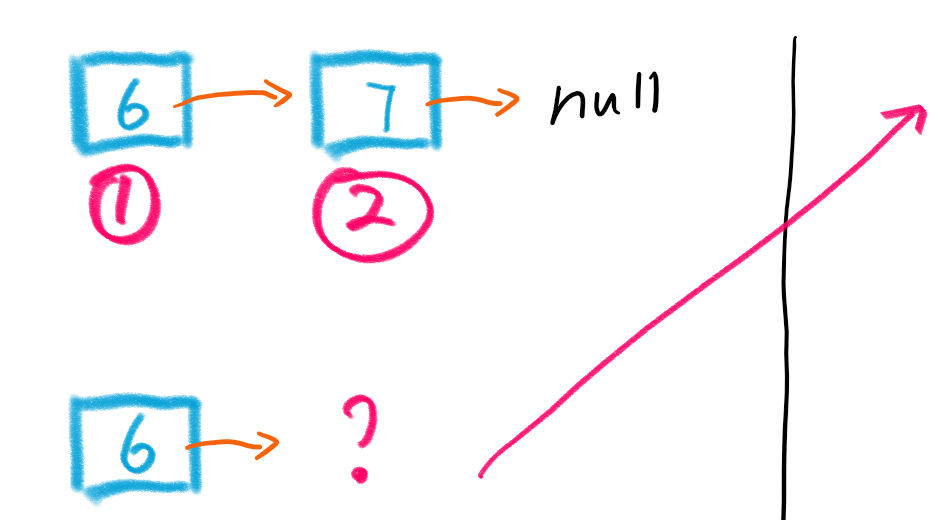 6 7 null
1 2
6 ?